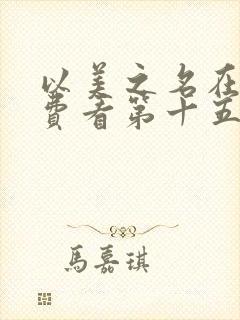 以美之名在
费者第十五
馬嘉琪